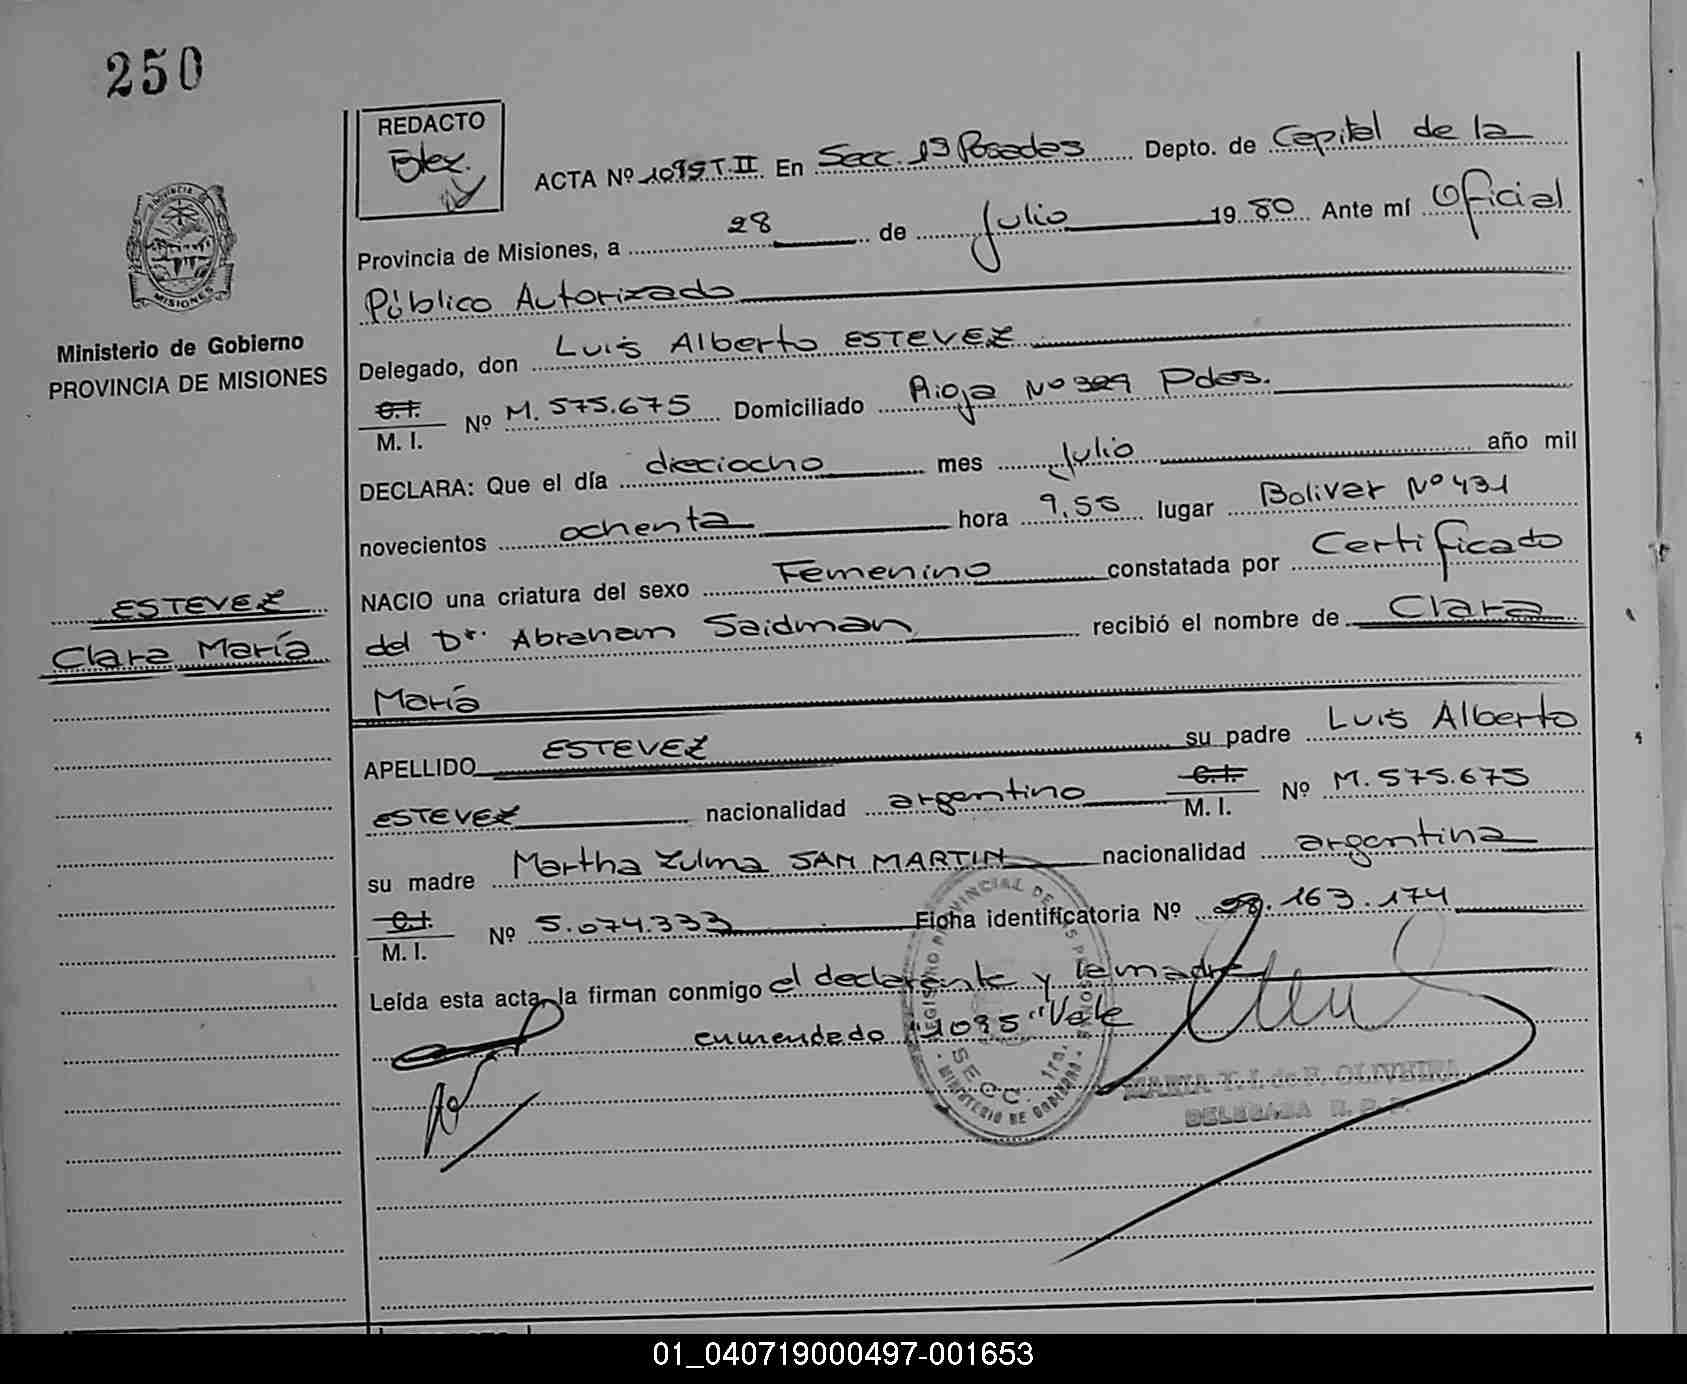 250
REDACTO
ACTA Nº 1095 T.II En Secc. 1ª Posadas Depto. de Capital de la
Provincia de Misiones, a 28 de Julio 19 80 Ante mí Oficial
Público Autorizado
MISIONES
Ministerio de Gobierno
PROVINCIA DE MISIONES
Delegado, don Luis Alberto ESTEVEZ
C.I.
M. I. Nº M. 575.675 Domiciliado Rioja Nº 329 Pdas.
DECLARA: Que el día dieciocho mes Julio año mil
novecientos ochenta hora 9,55 lugar Bolivar Nº 431
NACIO una criatura del sexo Femenino constatada por Certificado
ESTEVEZ
Clara María
del Dr. Abraham Saidman recibió el nombre de Clara
María
APELLIDO ESTEVEZ su padre Luis Alberto
ESTEVEZ nacionalidad argentino C.I.
M. I. Nº M. 575.675
su madre Martha Zulma SAN MARTIN nacionalidad argentina
C.I.
M. I. Nº 5.074.333 Ficha identificatoria Nº .163.174
Leída esta acta, la firman conmigo el declarante y la madre
enmendado "1095" Vale
REGISTRO PROVINCIAL DE LAS PERSONAS
SECC. 1ra.
MINISTERIO DE GOBIERNO
MARIA T. I. de F. OLIVEIRA
DELEGADA R. P. P.
01_040719000497-001653